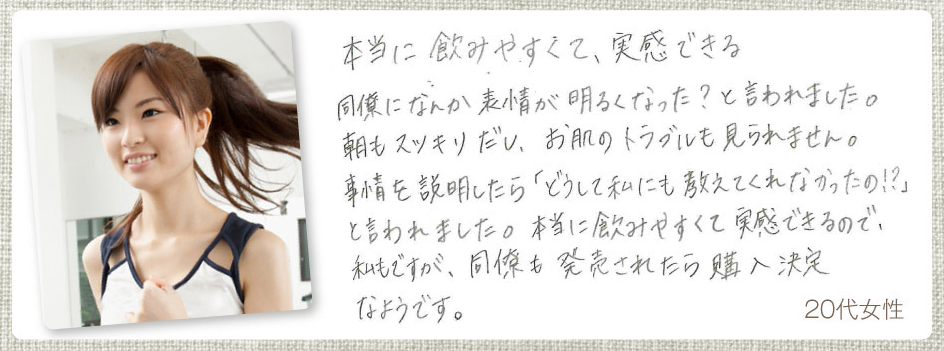 本当に飲みやすくて、実感できる
同僚になんか表情が明るくなった？と言われました。
朝もスッキリだし、お肌のトラブルも見られません。
事情を説明したら「どうして私にも教えてくれなかったの!?」
と言われました。本当に飲みやすくて実感できるので、
私もですが、同僚も発売されたら購入決定
なようです。
20代女性